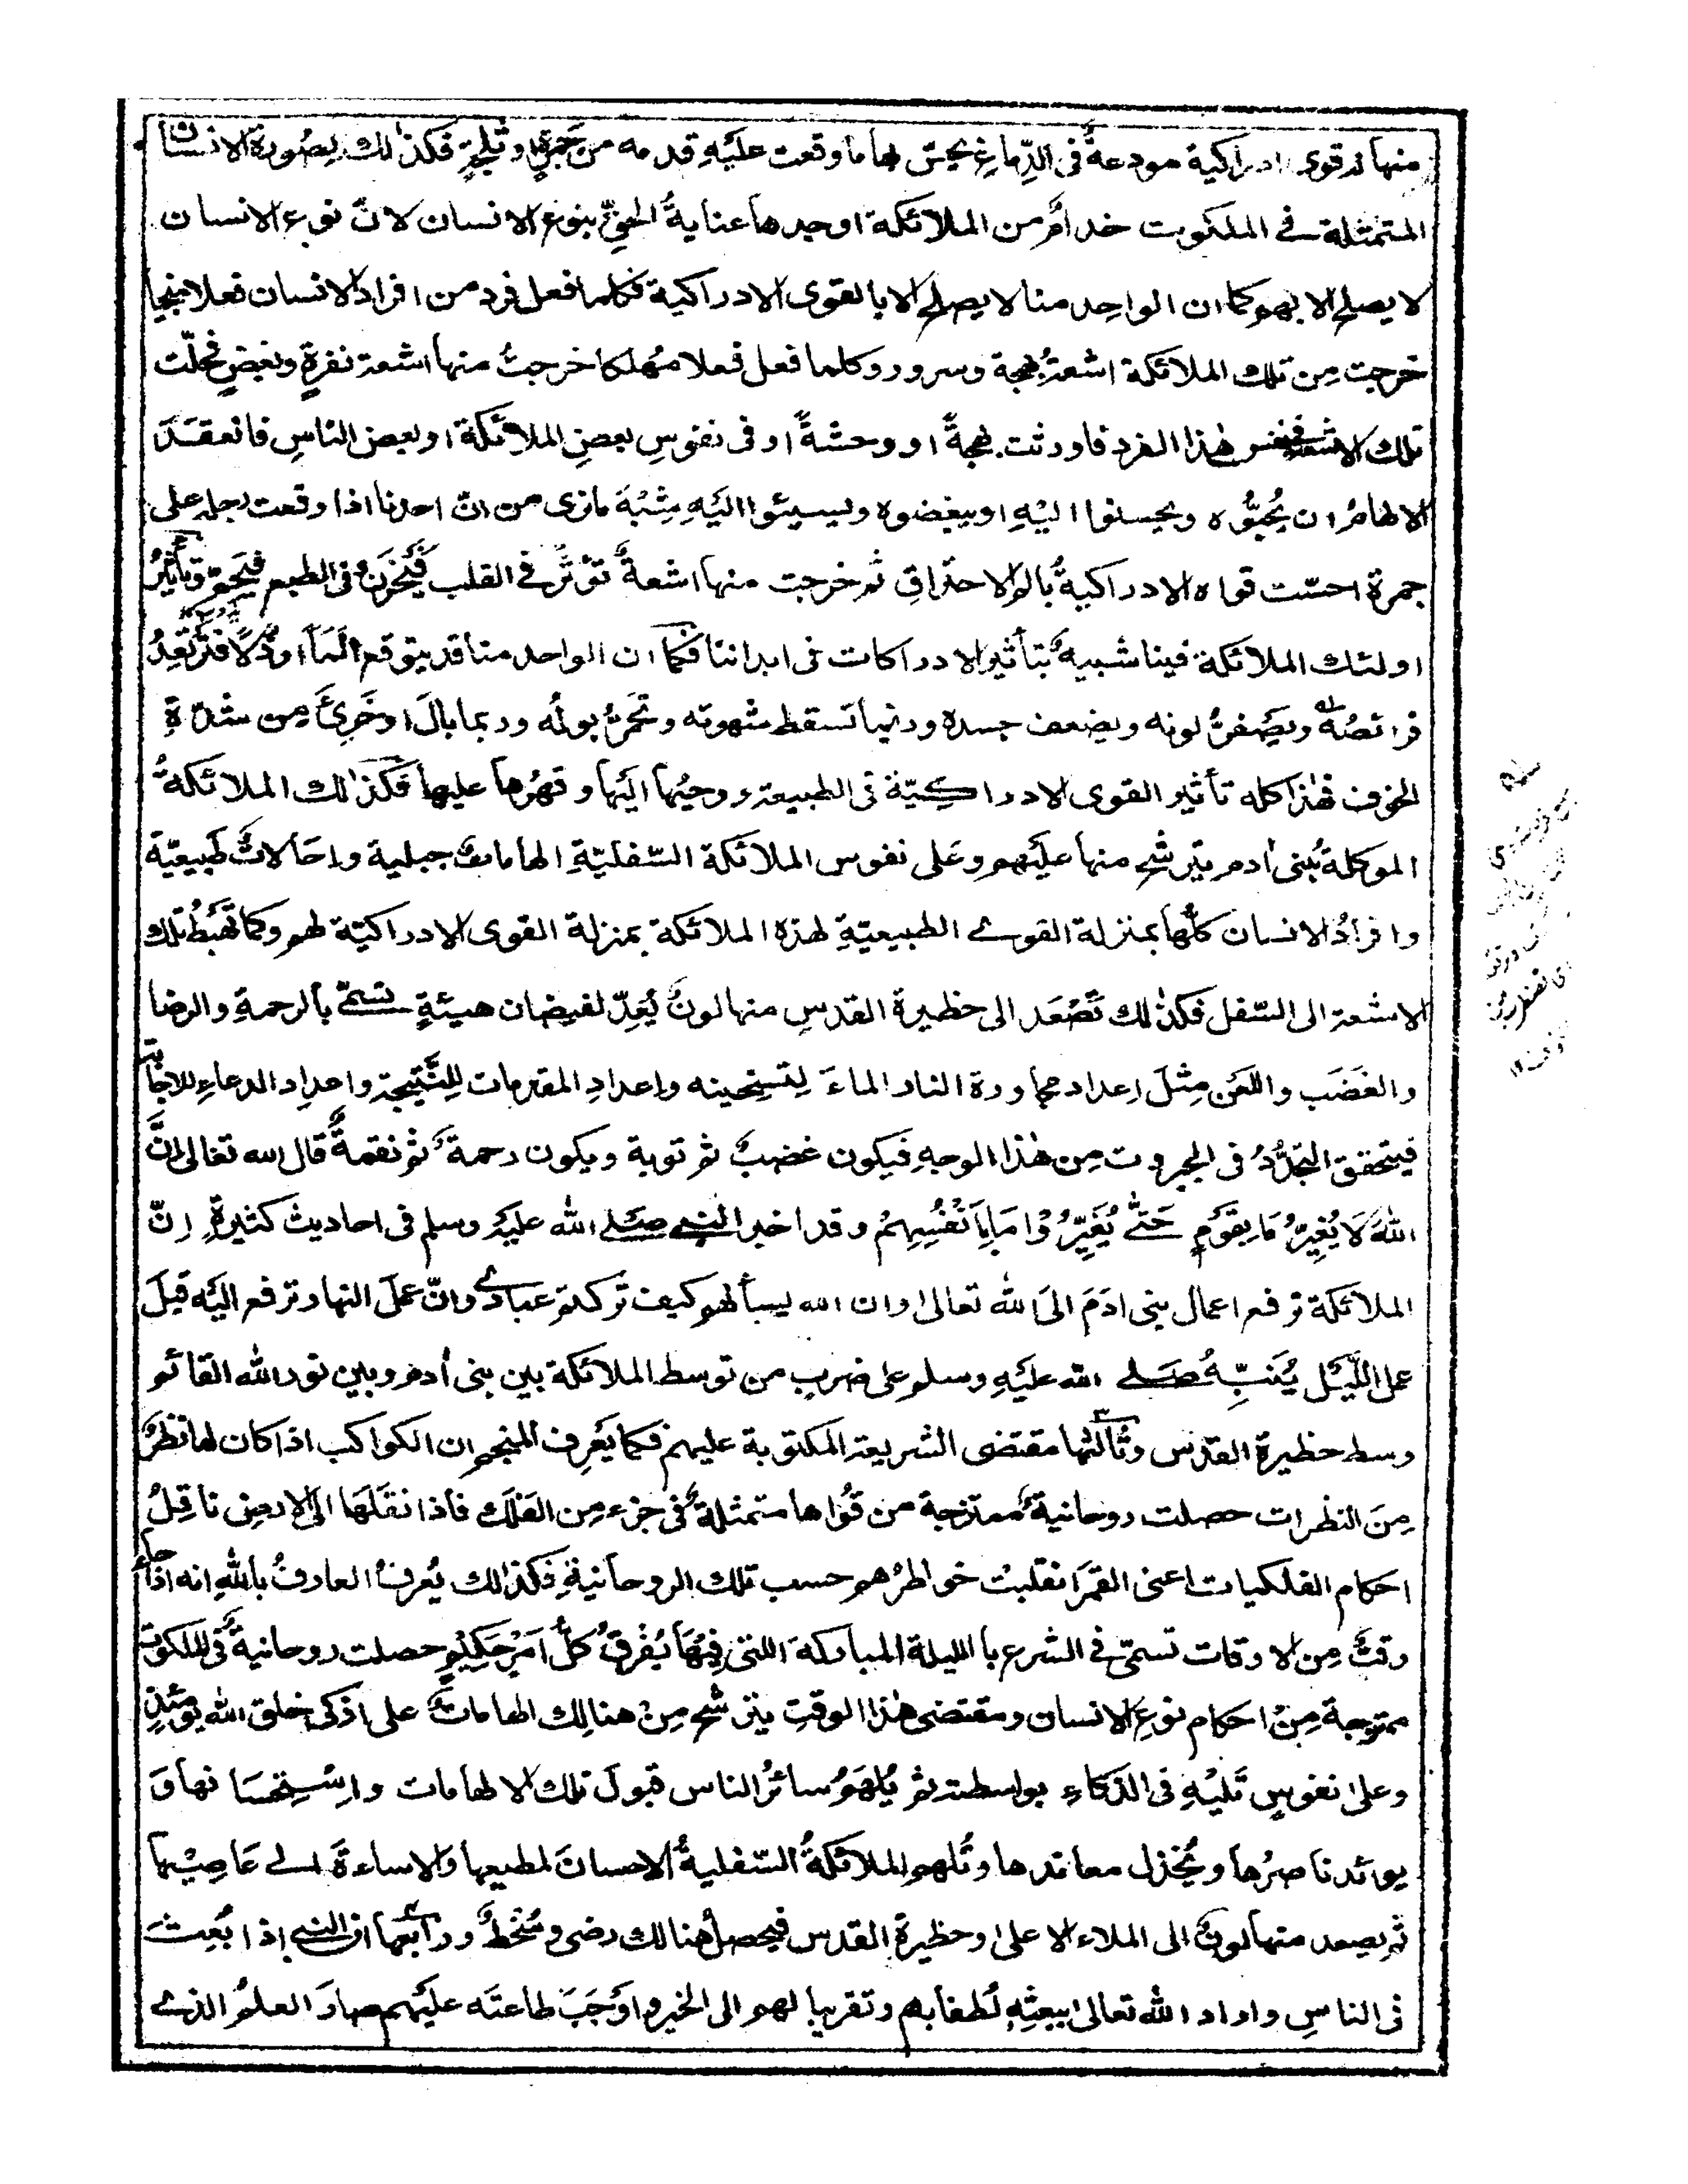 منا له قوى ادراكية مودعةٌ فى الدِّماغِ يحسّ بها ما وقعت عليه قدمه من جَمرةٍ او ثلجةٍ فكذٰلك لِصُورة الانسان
المتمثلة فے الملكوت خدامٌ من الملائكة اوجدها عنايةُ الحقِّ بنوع الانسان لانّ نوع الانسان
لا يصلح الا بهم كما ان الواحد منا لا يصلح الا بالقوى الادراكية فكلما فعل فرد من افراد الانسان فعلا منجيا
خرجت مِن تلك الملائكة اشعةُ بهجة وسرور وكلما فعل فعلا مُهلكا خرجت منها اشعة نفرةٍ وبغضٍ فحلّت
تلك الاشعة فى نفس هٰذا الفرد فاورثت بهجةً او وحشةً او فى نفوسِ بعضِ الملائكة او بعض الناسِ فانعقَدَ
الالهامُ ان يُحِبُّوه ويحسنوا اليْهِ او يبغضوه ويسيئوا اليَهِ شِبْهَ ما نرى من انّ احدنا اذا وقعت رجله على
جمرة احسّت قواه الادراكيةُ بالم الاحتراق ثم خرجت منها اشعةٌ تؤثّر فے القلب فَيَحْزَنُ وفى الطبع فيُحَمّ وتأثيرُ
اولئك الملائكة فينا شبيهٌ بتأثير الادراكات فى ابداننا فكما ان الواحد منا قد يتوقع اَلَمًا او ذُلًّا فتُرْتَعِدُ
فرائصُهٗ ويصفرُّ لونه ويضعف جسده وربما تسقط شهوته وتحمرُّ بولُه وربما بالَ او خَرِئَ مِن شدّةِ
الخوف فهٰذا كله تأثير القوى الادراكِيّة فى الطبيعة ووحيُها اليَها وقهرُها عليها فكذٰلك الملائكةُ
الموكلةُ ببنى اٰدم يترشح منها عليَهم وعَلى نفوس الملائكة السّفليّةِ الهاماتٌ جبلية واحَالاتٌ طَبيعيّة
وافرادُ الانسان كلُّها بمنزلة القوىٰ الطبيعيّةِ لهٰذه الملائكة بمنزلة القوى الادراكيّة لهم وكما تَهبُطُ تلك
الاشعة الى السّفل فكذٰلك تَصْعَد الى حظيرة القدسِ منها لونٌ يُعِدّ لفيضان هيئةٍ تسمّٰى بالرحمةِ والرضا
والغَضَب واللَعن مِثلَ اِعداد مجاورة النار الماءَ لِتسخينه واعدادِ المقدمات لِلنَّتيجة واعداد الدعاءِ للاجابة
فيتحقق التجدُّدُ فى الجبروت مِن هٰذا الوجهِ فَيكون غضبٌ ثم توبة ويكون رحمةٌ ثم نقمةٌ قال الله تعالىٰ اِنَّ
اللهَ لَا يُغَيِّرُ مَا بِقَوْمٍ حَتّٰے يُغَيِّرُوْا مَا بِاَنْفُسِهِمْ وقد اخبر النبے صلے الله عليهِ وسلم فى احاديث كثيرةٍ اِنّ
الملائكة ترفع اعمال بنى ادَمَ الَى الله تعالىٰ وان الله يسألهم كيف تركتم عبادے وانّ عملَ النهار ترفع اليَه قبلَ
عمل اللَّيْل يُنَبِّهُ صلے الله عليَهِ وسلم على ضربٍ من توسط الملائكة بين بنى اٰدم وبين نور الله القائم
وسط حظيرة القدس وثالثها مقتضى الشريعة المكتوبة عليهم فكما يَعرِف المنجم ان الكواكب اذا كان لها نظرٌ
مِنَ النظرات حصلت روحانيةٌ ممتزجة من قُواها متمثلةٌ فى جزء مِن الفَلَك فاذا نقلَهَا الى الارضِ ناقِلُ
احكام الفلكيات اعنى القمرَ انقلبت خواطرُهم حسب تلك الروحانيةِ فكذٰلك يُعرفُ العارفُ باللهِ انه اذا جاء
وقتٌ مِن الاوقات تسمّٰى فے الشرع بالليلة المباركةَ اللتى فِيْهَا يُفْرَقُ كُلُّ اَمْرٍ حَكِيْمٍ حصلت روحانيةٌ فى الملكوت
ممتزجة مِنْ احكام نوعِ الانسان ومقتضى هٰذا الوقتِ يترشح مِنْ هنالك الهاماتٌ على اذكى خلق الله يومئذٍ
وعلىٰ نفوسٍ تَليْهِ فى الذكاءِ بواسطته ثم يُلهَمُ سائرُ الناس قبولَ تلك الالهامات واسْتِحْسَانها وَ
يوائد ناصرُها ويُخذل معاندها وتُلهم الملائكةُ السّفليةُ الاحسانَ لمطيعها والاساءةَ الے عَاصِيْها
ثم يصعد منها لونٌ الى الملاء الاعلىٰ وحظيرة القدس فيحصل هنالك رضى وسُخطٌ ورابعها ان النبے اذا بُعِثَ
فى الناسِ واراد الله تعالىٰ ببعثِهٖ لُطفا بهم وتقريبا لهم الى الخير واوْجَبَ طاعتَه عليَهم صارَ العلمُ الذے